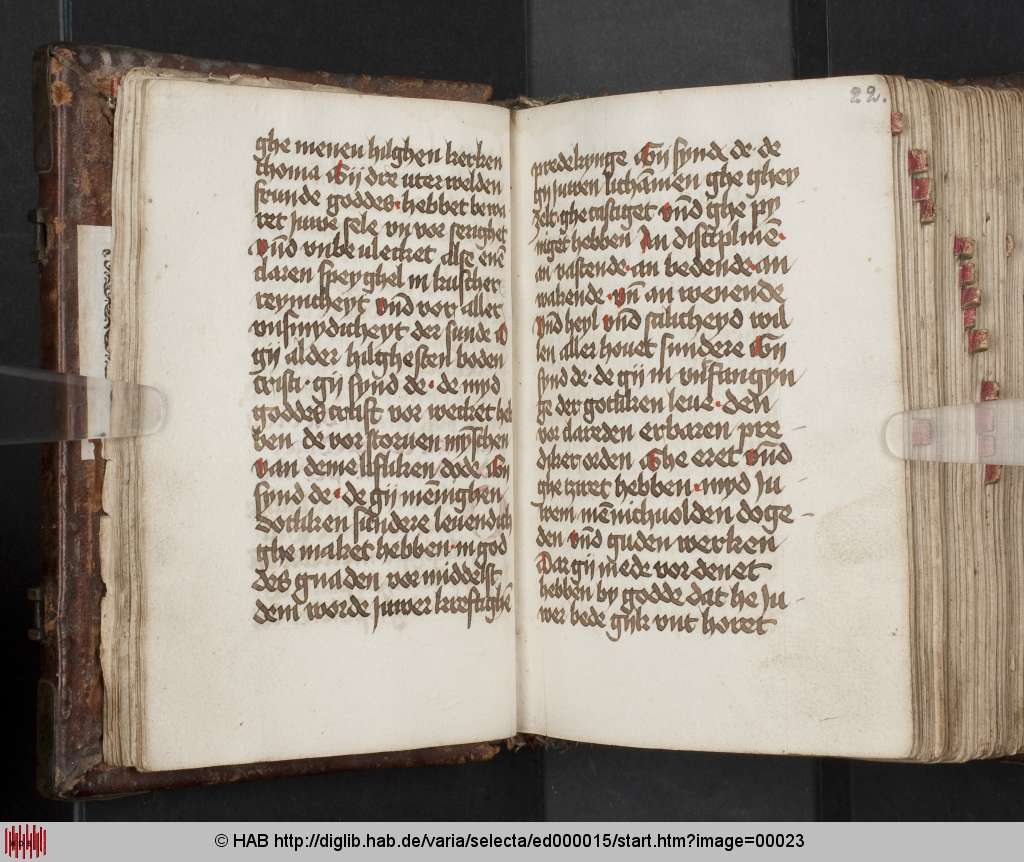 ghe menen hilghen kerken
thoma Gij dre uter welden
frunde goddes hebbet bewa
ret juwe sele vn vor serighet
vnd vnbe ulecket alse ene
claren speyghel in kuscher
reynicheyt vnd vor aller
vnsinydicheyt der sunde O
gij alder hilghesten boden
cristi gij synd de de myd
goddes crist vor wecket heb
ben de vor storuen mynschen
van deme lifliken dode Gij
synd de de gij menighen
dotliken sundere leuendich
ghe maket hebben in god
des gnaden vor middelst
dem worde juwer kreftighen
22.
predekynge Gij synd de de
gij juwen lichamen ghe ghey
zelt ghe castiget vnd ghe py
niget hebben An disciplinen
an vastende an bedende an
wakende vn an wenende
vnd heyl vnd salicheyd wil
len aller houet sundere Gij
synd de de gij in vnfangyn
ge der gotliken leue den
vor clareden erbaren pre
diker orden Ghe eret vnd
ghe tziret hebben myd ju
wem menichuolden doge
den vnd guden werken
Dar gij mede vor denet
hebben by godde dat he ju
wer bede gijk vnt horet
© HAB http://diglib.hab.de/varia/selecta/ed000015/start.htm?image=00023